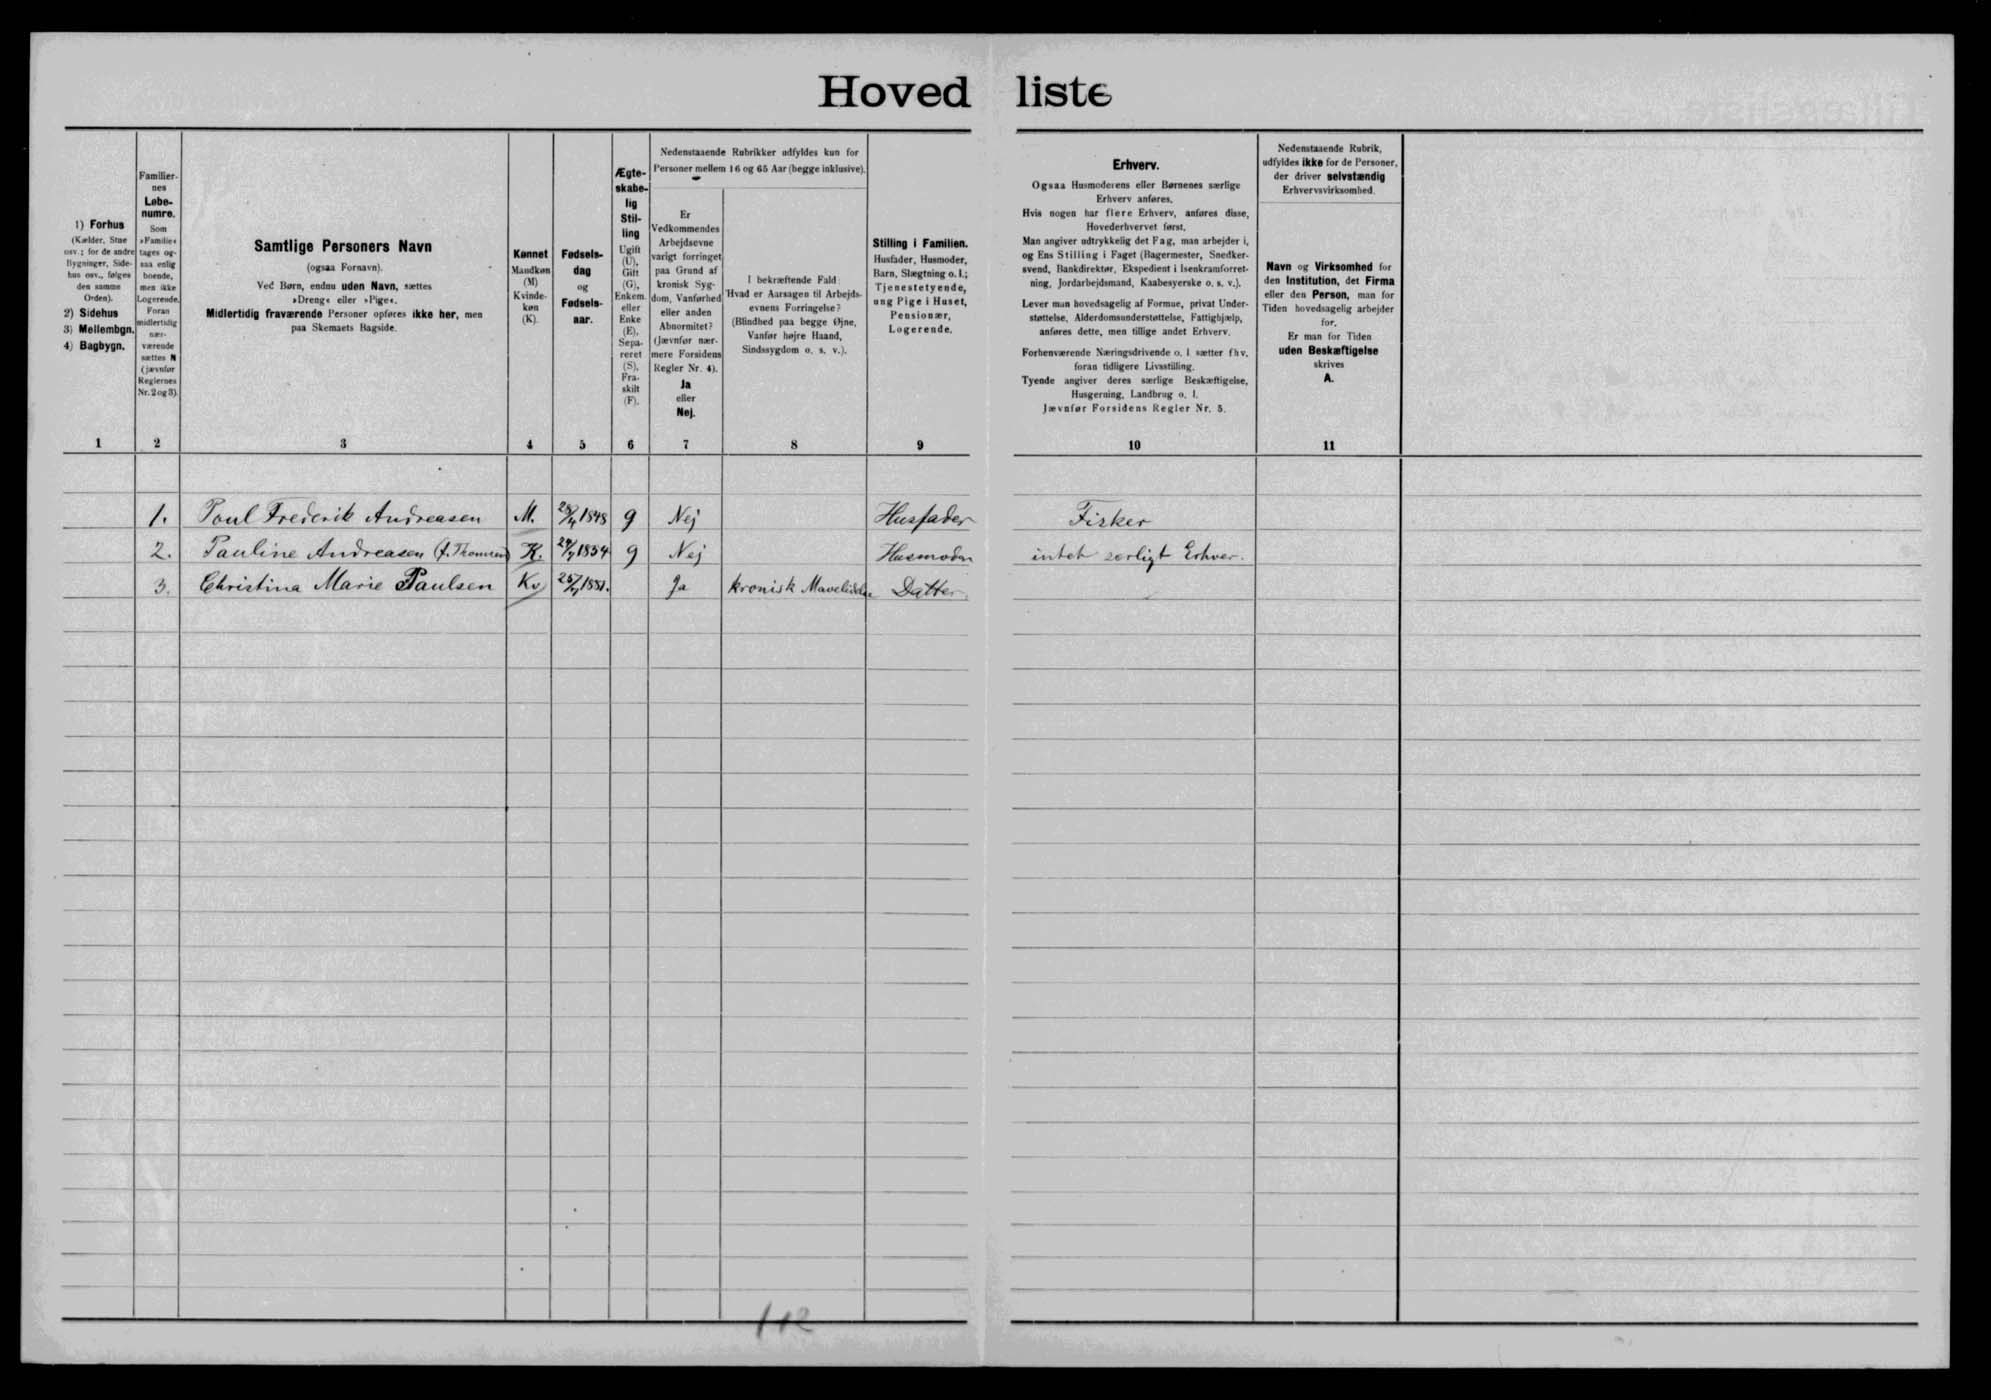 Hoved liste
1) Forhus
(Kælder, Stue
osv.; for de andre
Bygninger, Side-
hus osv., følges
den samme
Orden).
2) Sidehus
3) Mellembgn.
4) Bagbygn.
1
Familier-
nes
Løbe-
numre.
Som
»Familie«
tages og-
saa enlig
boende,
men ikke
Logerende.
Foran
midlertidig
nær-
værende
sættes N
(jævnfør
Reglernes
Nr. 2 og 3).
2
Samtlige Personers Navn
(ogsaa Fornavn).
Ved Børn, endnu uden Navn, sættes
»Dreng« eller »Pige«.
Midlertidig fraværende Personer opføres ikke her, men
paa Skemaets Bagside.
3
Kønnet
Mandkøn
(M)
Kvinde-
køn
(K).
4
Fødsels-
dag
og
Fødsels-
aar.
5
Ægte-
skabe-
lig
Stil-
ling
Ugift
(U),
Gift
(G),
Enkem.
eller
Enke
(E),
Sepa-
reret
(S),
Fra-
skilt
(F).
6
Nedenstaaende Rubrikker udfyldes kun for
Personer mellem 16 og 65 Aar (begge inklusive).
Er
Vedkommendes
Arbejdsevne
varigt forringet
paa Grund af
kronisk Syg-
dom, Vanførhed
eller anden
Abnormitet?
(Jævnfør nær-
mere Forsidens
Regler Nr. 4).
Ja
eller
Nej.
7
I bekræftende Fald:
Hvad er Aarsagen til Arbejds-
evnens Forringelse?
(Blindhed paa begge Øjne,
Vanfør højre Haand,
Sindssygdom o. s. v.).
8
Stilling i Familien.
Husfader, Husmoder,
Barn, Slægtning o. l.;
Tjenestetyende,
ung Pige i Huset,
Pensionær,
Logerende.
9
Erhverv.
Ogsaa Husmoderens eller Børnenes særlige
Erhverv anføres.
Hvis nogen har flere Erhverv, anføres disse,
Hovederhvervet først.
Man angiver udtrykkelig det Fag, man arbejder i,
og Ens Stilling i Faget (Bagermester, Snedker-
svend, Bankdirektør, Ekspedient i Isenkramforret-
ning, Jordarbejdsmand, Kaabesyerske o. s. v.).
Lever man hovedsagelig af Formue, privat Under-
støttelse, Alderdomsunderstøttelse, Fattighjælp,
anføres dette, men tillige andet Erhverv.
Forhenværende Næringsdrivende o. l. sætter fhv.
foran tidligere Livsstilling.
Tyende angiver deres særlige Beskæftigelse,
Husgerning, Landbrug o. l.
Jævnfør Forsidens Regler Nr. 5.
10
Nedenstaaende Rubrik,
udfyldes ikke for de Personer,
der driver selvstændig
Erhvervsvirksomhed.
Navn og Virksomhed for
den Institution, det Firma
eller den Person, man for
Tiden hovedsagelig arbejder
for.
Er man for Tiden
uden Beskæftigelse
skrives
A.
11
1. Poul Frederik Andreasen M. 1848 g Nej Husfader Fisker
2. Pauline Andreasen (f. Thomsen) K. 1854 g Nej Husmoder intet særligt Erhver.
3. Christina Marie Paulsen Kv 1881. Ja kronisk Mavelidelse Datter
112